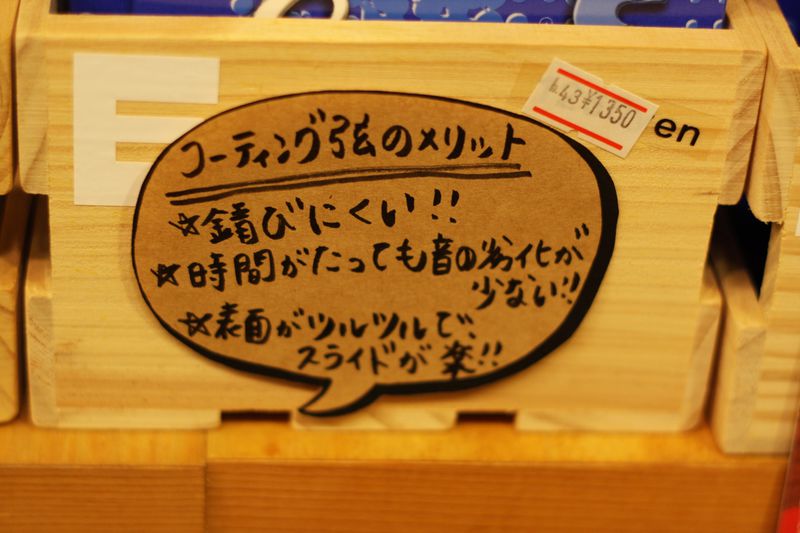 E
6.43 ¥1,350
en
コーティング弦のメリット
☆錆びにくい!!
☆時間がたっても音の劣化が
少ない!!
☆表面がツルツルで、
スライドが楽!!